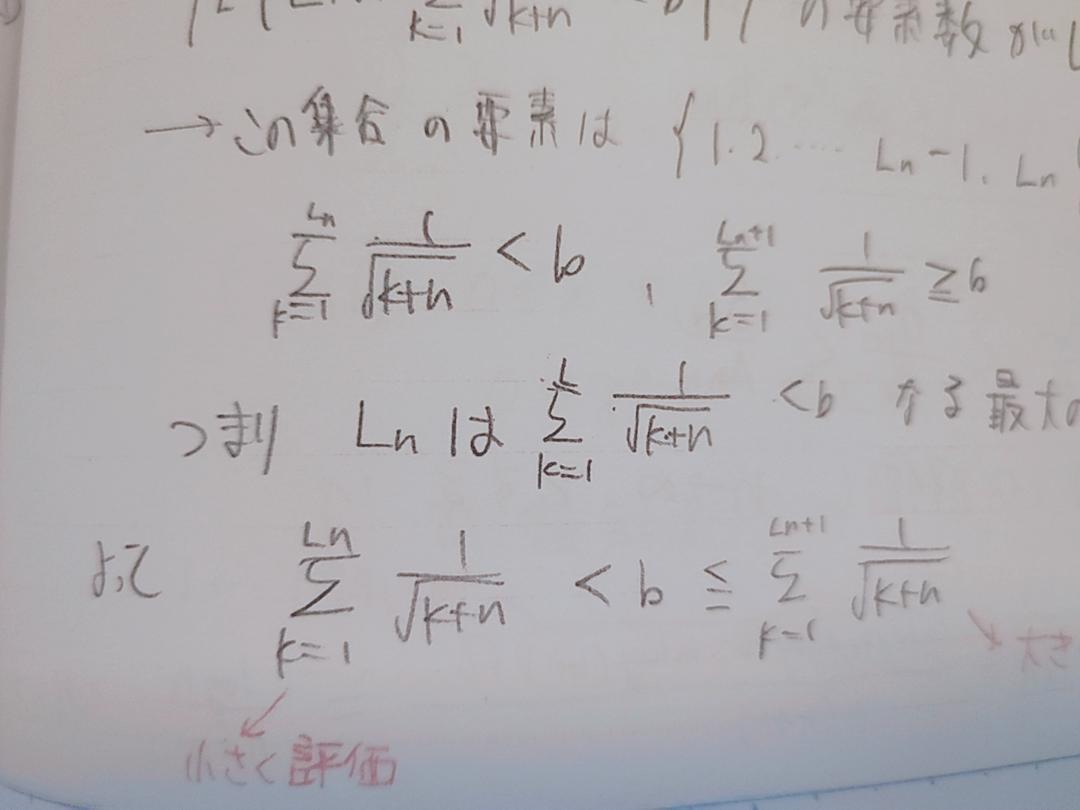 Σ k=1 1/√k+n の要素数が
→この集合の要素は {1.2 ‥‥ Ln-1, Ln
Σ_{k=1}^{Ln} 1/√k+n < b , Σ_{k=1}^{Ln+1} 1/√k+n ≧ b
つまり Ln は Σ_{k=1}^{L} 1/√k+n < b なる最大の
よって Σ_{k=1}^{Ln} 1/√k+n < b ≦ Σ_{k=1}^{Ln+1} 1/√k+n
小さく評価
大き